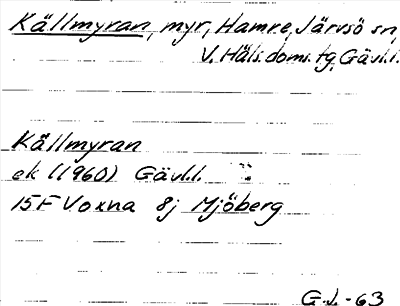 Källmyran, myr, Hamre, Järvsö sn,
V. Häls. doms. tg, Gävl.l.
Källmyran
ek (1960) Gävl.l.
15F Voxna 8j Mjöberg
G.L-63